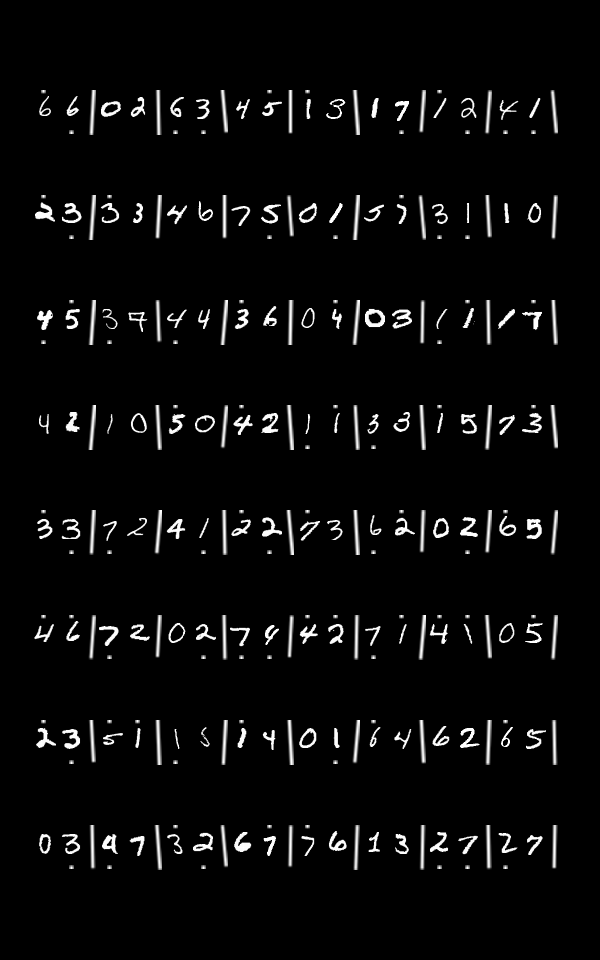 6 6 | 0 2 | 6 3 | 4 5 | 1 3 | 1 7 | 1 2 | 4 1 |
2 3 | 3 3 | 4 6 | 7 5 | 0 1 | 5 7 | 3 1 | 1 0 |
4 5 | 3 7 | 4 4 | 3 6 | 0 4 | 0 3 | 1 1 | 1 7 |
4 2 | 1 0 | 5 0 | 4 2 | 1 1 | 3 3 | 1 5 | 7 3 |
3 3 | 7 2 | 4 1 | 2 2 | 7 3 | 6 2 | 0 2 | 6 5 |
4 6 | 7 2 | 0 2 | 7 4 | 4 2 | 7 1 | 4 1 | 0 5 |
2 3 | 5 1 | 1 5 | 1 4 | 0 1 | 6 4 | 6 2 | 6 5 |
0 3 | 4 7 | 3 2 | 6 7 | 7 6 | 1 3 | 2 7 | 2 7 |